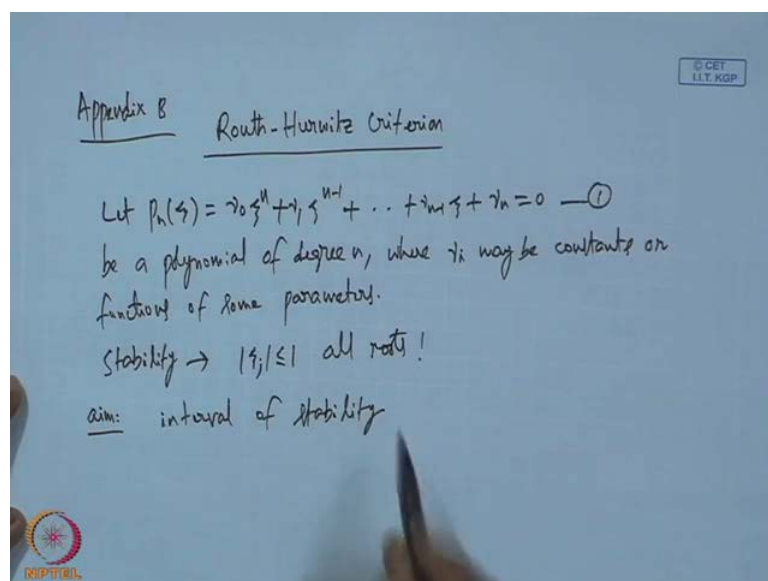 © CET
I.I.T. KGP
Appendix B
Routh-Hurwitz Criterion
Let pₙ(ξ) = γ₀ξⁿ + γ₁ξⁿ⁻¹ + .. + γₙ₋₁ξ + γₙ = 0 —①
be a polynomial of degree n, where γᵢ may be constants or
functions of some parameters.
Stability → |ξⱼ| ≤ 1 all roots !
aim: interval of stability
NPTEL